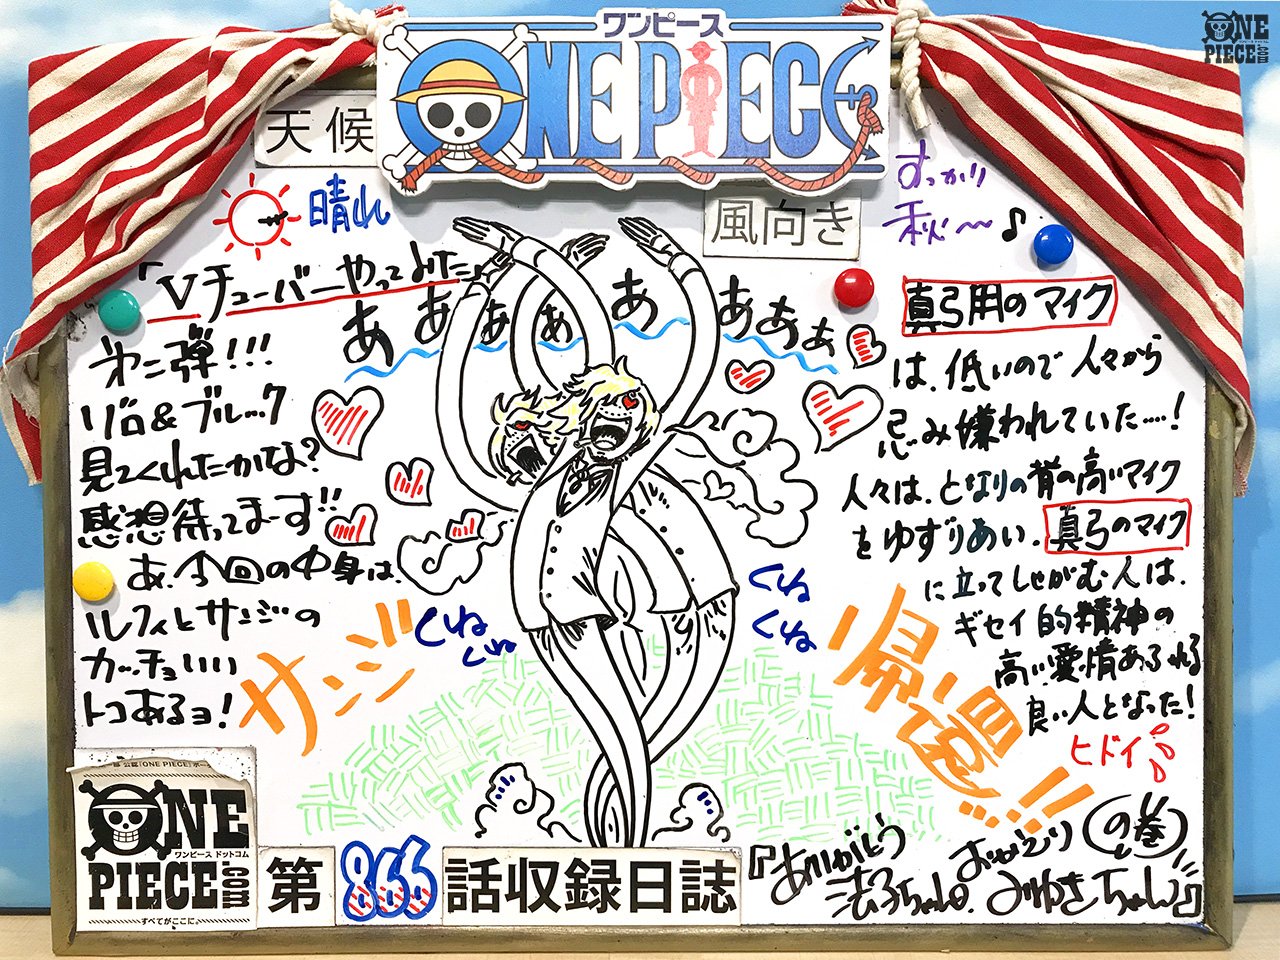 ワンピース
ONE PIECE
ONE
PIECE.COM
天候
晴れ
風向き
すっかり
秋〜♪
「Vチューバーやってみた」
第二弾!!!
ゾロ&ブルック
見てくれたかな?
感想待ってまーす!!
あ、今回の中身は、
ルフィとサンジの
カッチョいい
トコあるヨ!
あああああああ
くねくね
くねくね
サンジ
帰還!!
真弓用のマイク
は、低いので人々から
忌み嫌われていた……!
人々は、となりの背の高いマイク
をゆずりあい、真弓のマイク
に立ってしゃがむ人は、
ギセイ的精神の
高い愛情あふれる
良い人となった!
ヒドイ
『ありがとう
法子ちゃん、
おかえり
みゆきちゃん』
の巻
ONE
ワンピース ドットコム
PIECE.com
すべてがここに。
第866話収録日誌